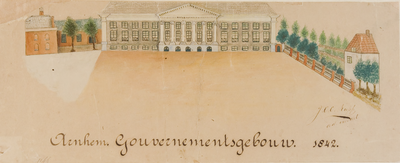 Arnhem. Gouvernementsgebouw. 1842.